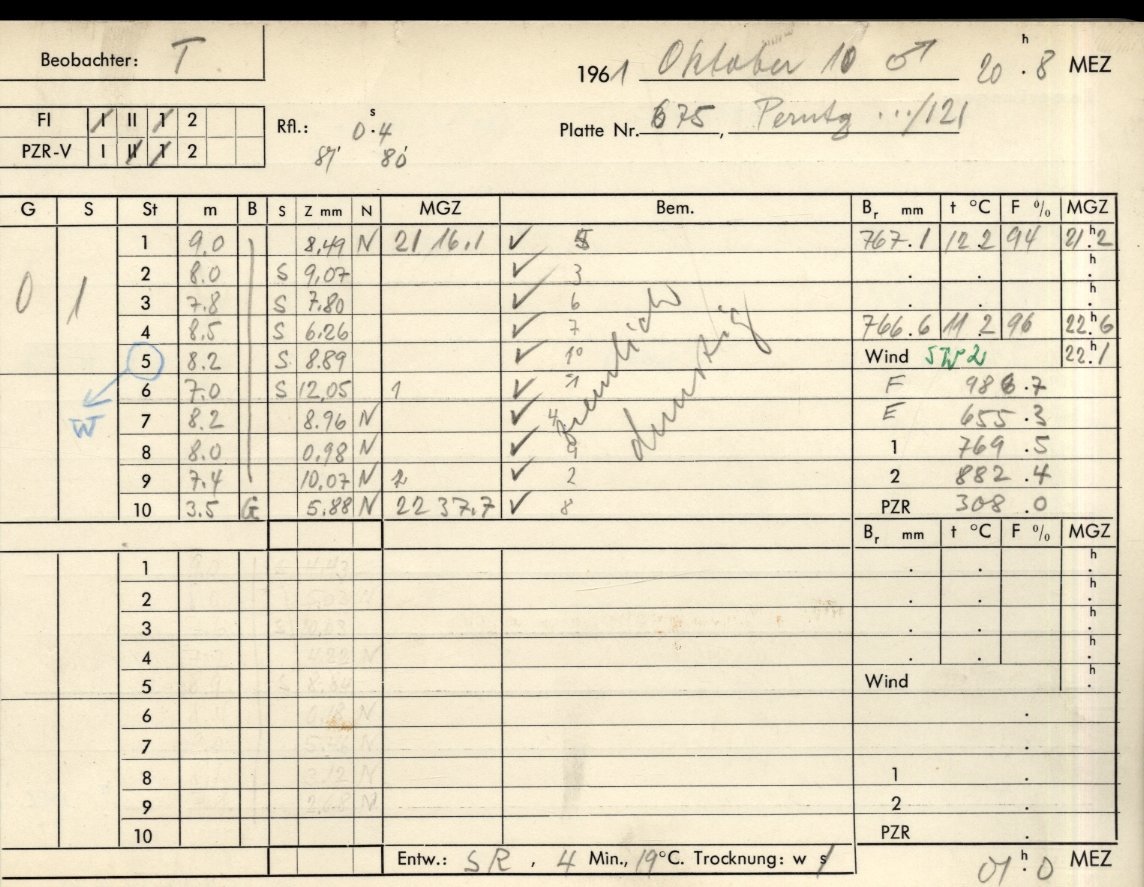 Beobachter: T
1961 Oktober 10 ♂ 20h.8 MEZ
FI I II 1 2
PZR-V I II 1 2
Rfl.: 0s.4
81' 80'
Platte Nr. 675, Perutz .../121
G S St m B S Z mm N MGZ Bem. Br mm t °C F % MGZ
0 1
1 9.0 8,49 N 21 16.1 ✓ 5 767.1 12 2 94 21h.2
2 8.0 S 9,07 ✓ 3 . . h.
3 7.8 S 7.80 ✓ 6 . . h.
4 8.5 S 6.26 ✓ 7 766.6 11 2 96 22h.6
5 8.2 S 8.89 ✓ 10 Wind SW 2 22h.1
W
6 7.0 S 12,05 1 ✓ 1 F 986.7
7 8.2 8.96 N ✓ 4 E 655.3
8 8.0 0,98 N ✓ 9 1 769.5
9 7.4 10,07 N 2 ✓ 2 2 882.4
10 3.5 G 5.88 N 22 37.7 ✓ 8 PZR 308.0
ziemlich
dunstig
Br mm t °C F % MGZ
1 . . h.
2 . . h.
3 . . h.
4 . . h.
5 Wind h.
6 .
7 .
8 1 .
9 2 .
10 PZR .
Entw.: SR, 4 Min., 19°C. Trocknung: w s
01h.0 MEZ